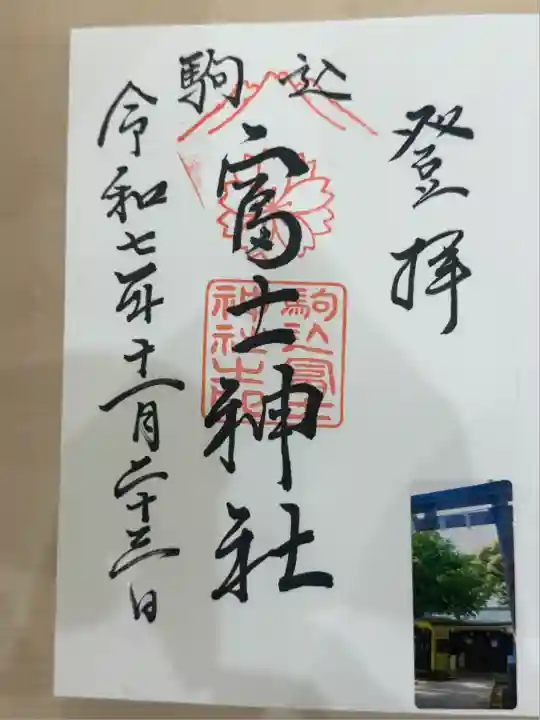 登拝
駒込
富士神社
駒込富士
神社
令和七年十一月二十三日